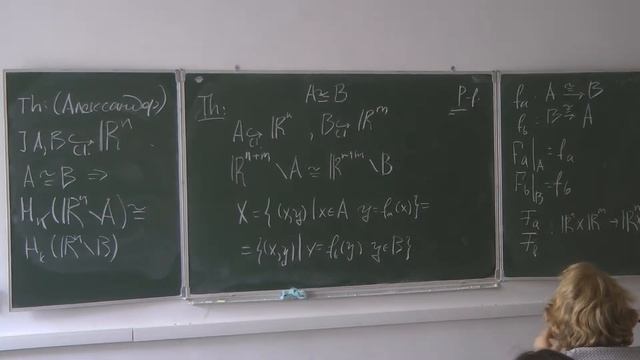 Th: (Александер)
] A, B ↪cl. ℝⁿ
A ≅ B ⇒
H_k(ℝⁿ \ A) ≅
H_k(ℝⁿ \ B)
Th: A ≅ B P-f.
A ↪cl. ℝⁿ , B ↪cl. ℝᵐ
ℝⁿ⁺ᵐ \ A ≅ ℝⁿ⁺ᵐ \ B
X = {(x,y) | x∈A y=f_a(x)} =
= {(x,y) | x=f_b(y) y∈B}
f_a: A ≅→ B
f_b: B ≅→ A
F_a|_A = f_a
F_b|_B = f_b
F_a
F_b : ℝⁿ×ℝᵐ → ℝⁿ